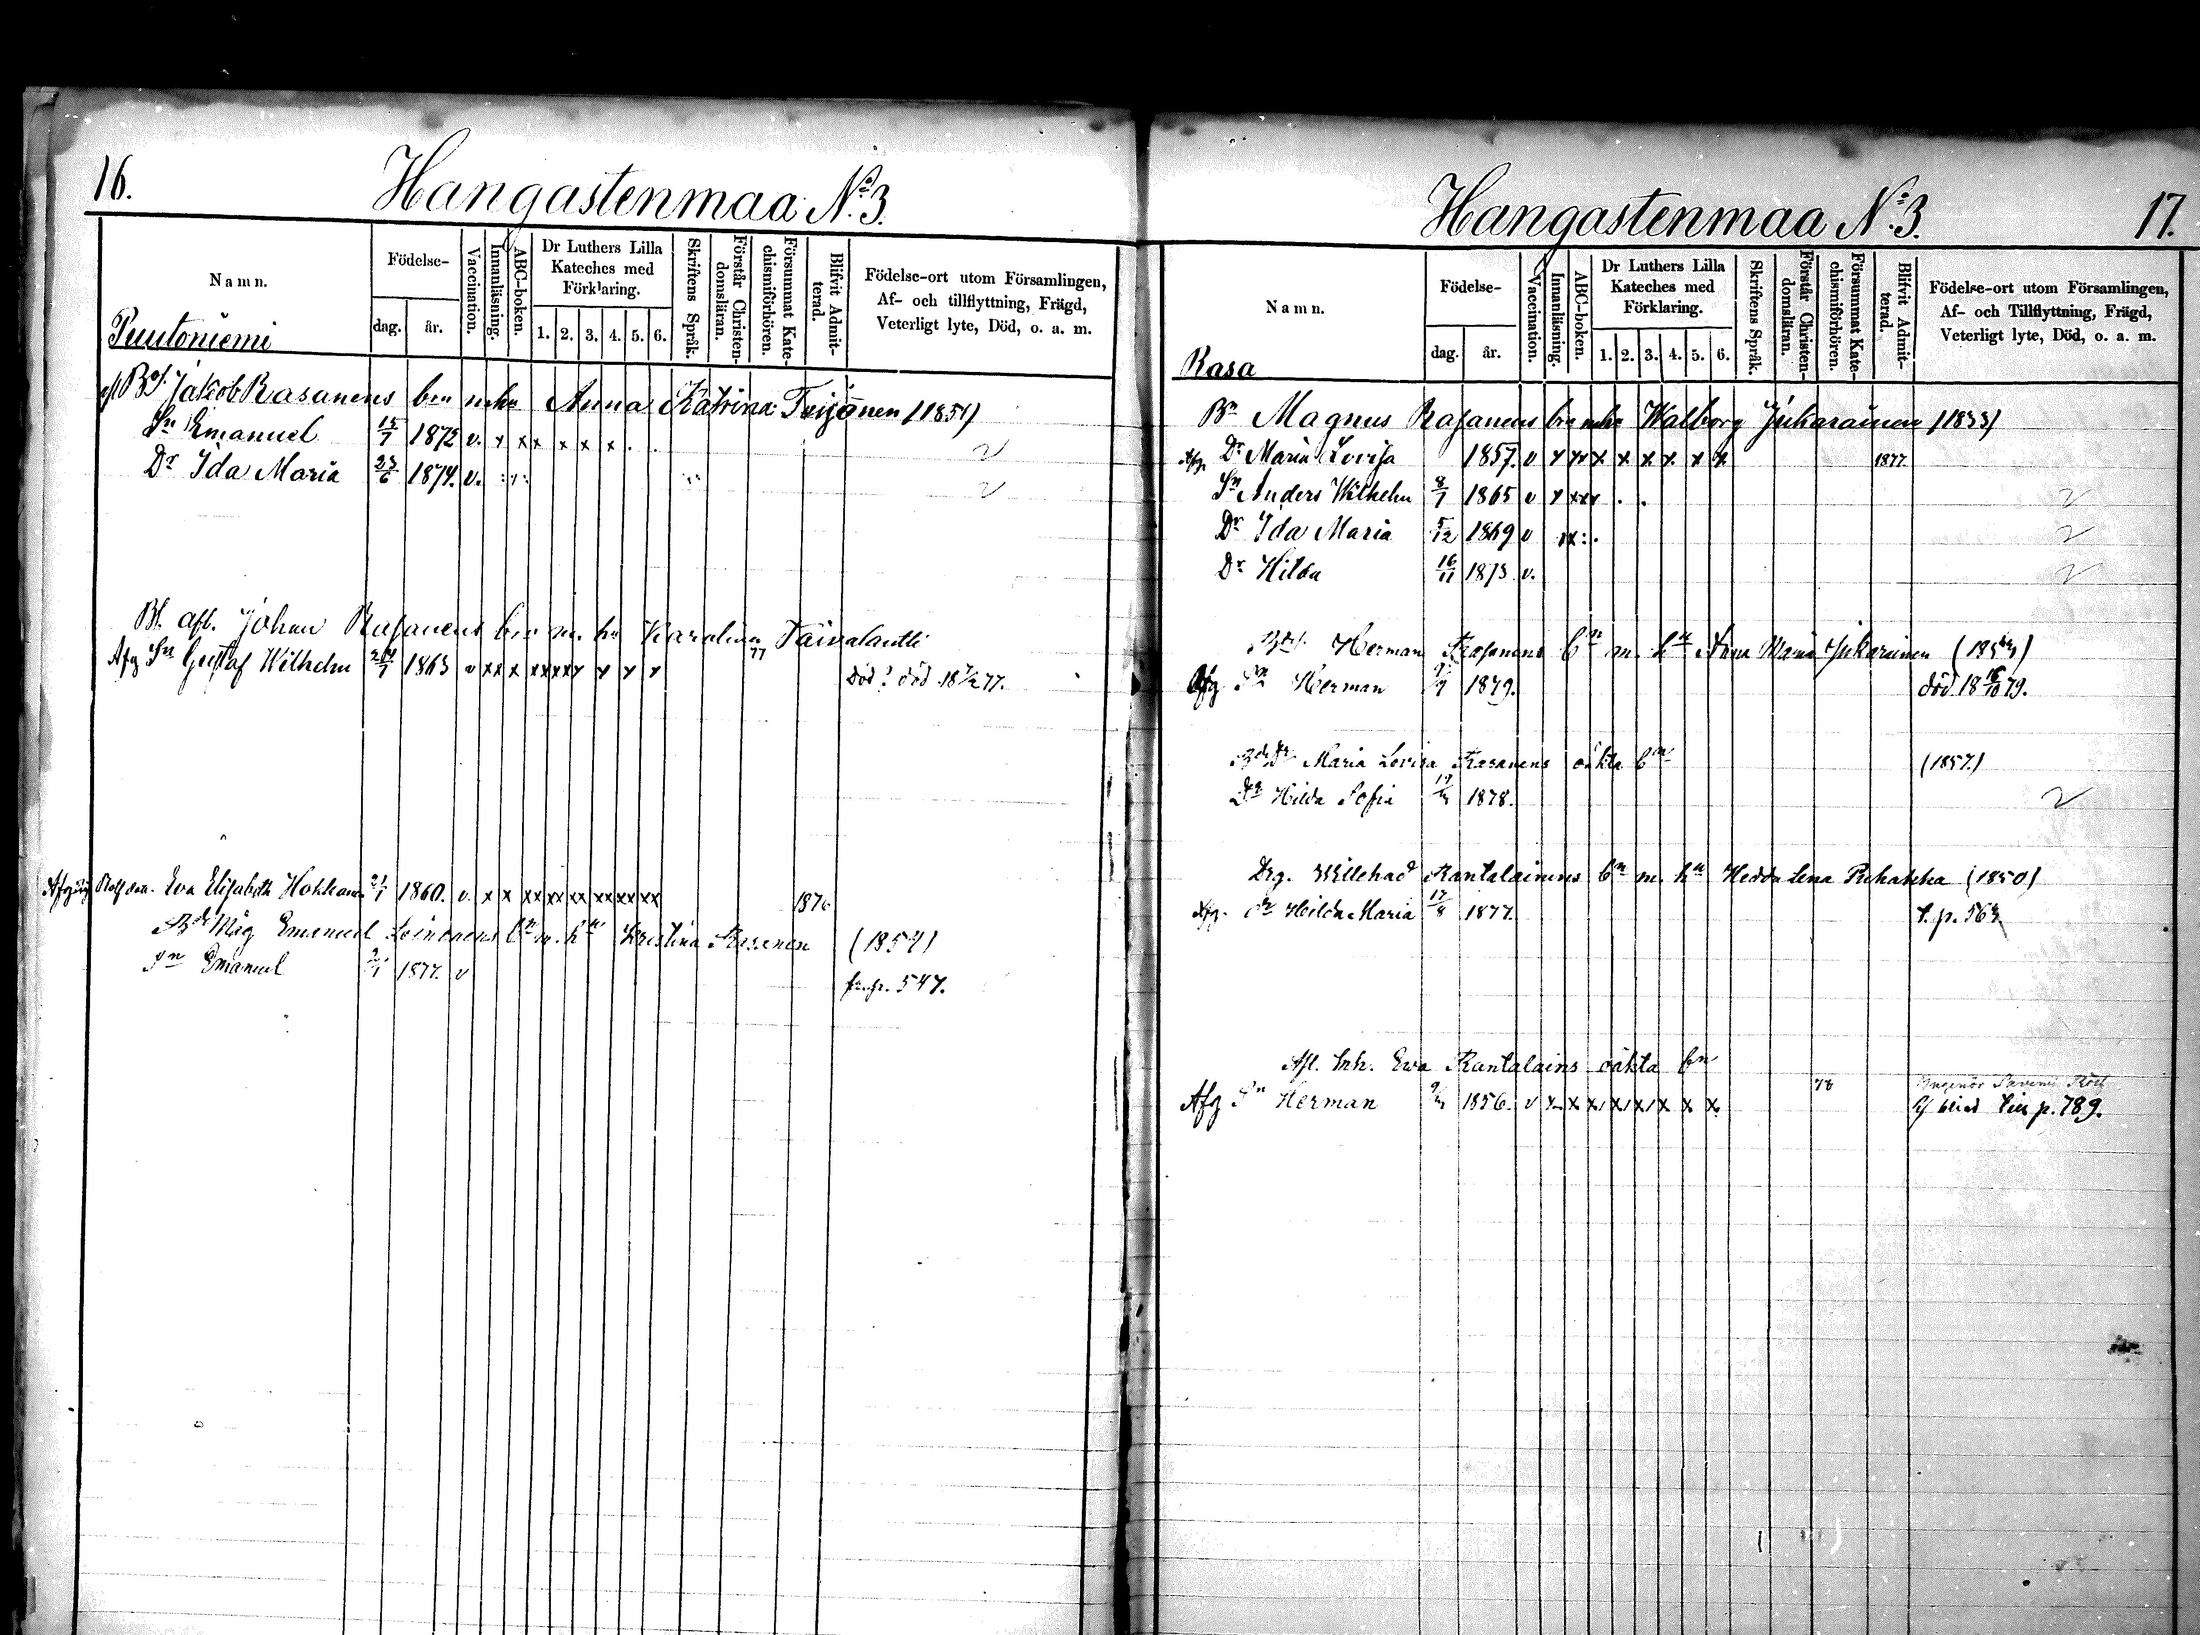 16.
Hangastenmaa No 3.
Namn.
Födelse-
dag.
år.
Vaccination.
Innanläsning.
ABC-boken.
Dr Luthers Lilla Kateches med Förklaring.
1. 2. 3. 4. 5. 6.
Skriftens Språk.
Förstår Christendomsläran.
Försummat Katechismiförhören.
Blifvit Admitterad.
Födelse-ort utom Församlingen,
Af- och tillflyttning, Frägd,
Veterligt lyte, Död, o. a. m.
Puutoniemi
Jakob Rasanens ben mhu Anna Katrina Teijonen (1851)
Sn Emanuel 15/7 1872 v. x xx x x x
Dr Ida Maria 23/6 1874. v.
Bf. afl. Johan Rasanens ben m. hu Karolina Taivalantti
Afg Sn Gustaf Wilhelm 1863 v xx x xxxxx x x x 77 död 18 77.
Eva Elisabeth 1860. v. x x xx xx xx xx xx xx 1876
Måg Emanuel Loinonens bn m. hu Kristina Rasanen (1857)
Sn Emanuel 1877. v fr. p. 547.
Hangastenmaa No 3.
17.
Namn.
Födelse-
dag.
år.
Vaccination.
Innanläsning.
ABC-boken.
Dr Luthers Lilla Kateches med Förklaring.
1. 2. 3. 4. 5. 6.
Skriftens Språk.
Förstår Christendomsläran.
Försummat Katechismiförhören.
Blifvit Admitterad.
Födelse-ort utom Församlingen,
Af- och Tillflyttning, Frägd,
Veterligt lyte, Död, o. a. m.
Rasa
Bn Magnus Rasanens ben mhu Walborg Jukarainen (1833)
Afg. Dr Maria Lovisa 1857. v x xx x x x x x x 1877
Sn Anders Wilhelm 8/7 1865 v x xxx
Dr Ida Maria 5/12 1869 v xx
Dr Hilda 16/11 1873 v.
Herman Rasanens bn m. hu Anna Maria Jukarainen
Afg Sn Herman 1879. död 18 16/10 79.
Maria Lovisa Rasanens oäkta bn (1857.)
Dr Hilda Sofia 1878.
Drg. Willehad Rantalainens bn m. hu Hedda Lena Puhakka (1850)
Afg. Dr Hilda Maria 17/8 1877. t. p. 563
Afl. Inh. Eva Rantalains oäkta bn
Afg Sn Herman 1856. v x x x x x x x x 78 p. 789.